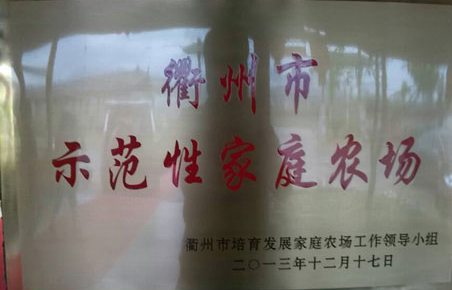 衢州市
示范性家庭农场
衢州市培育发展家庭农场工作领导小组
二〇一三年十二月十七日